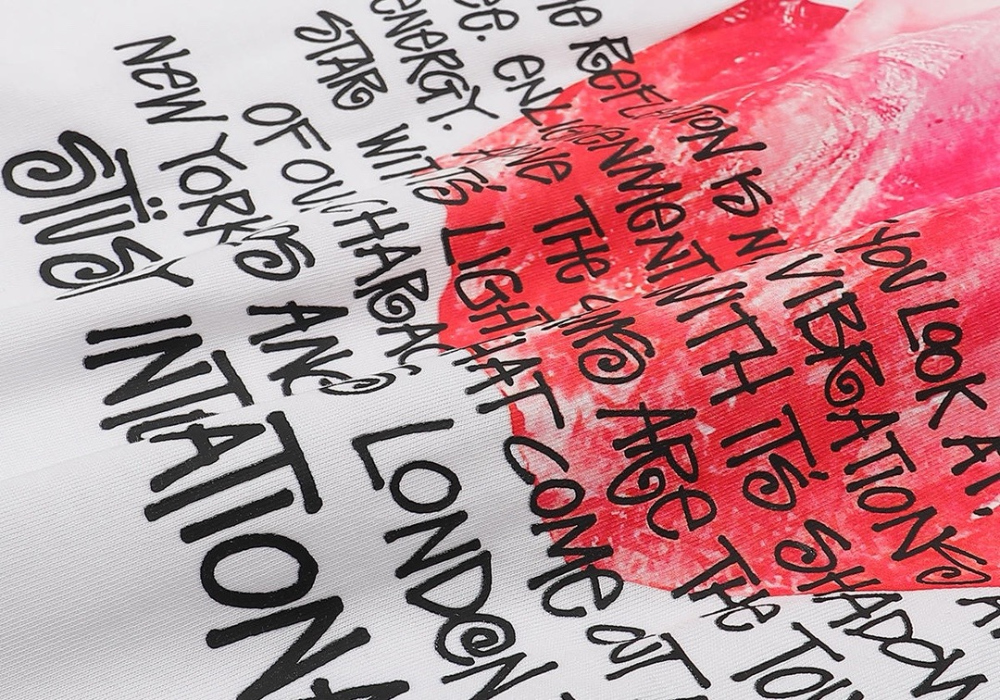 YOU LOOK AT
REFLECTION IS N VIBRATIONS
ENLIGHENMENT NITH IT'S SHADOW
ENERGY. AND THE ARE THE TOU
STAR WITS LIGH HAT COME OUT
OF OU CHARAC
NEW YORKS AND LONDON
STÜSY INTIATIONA